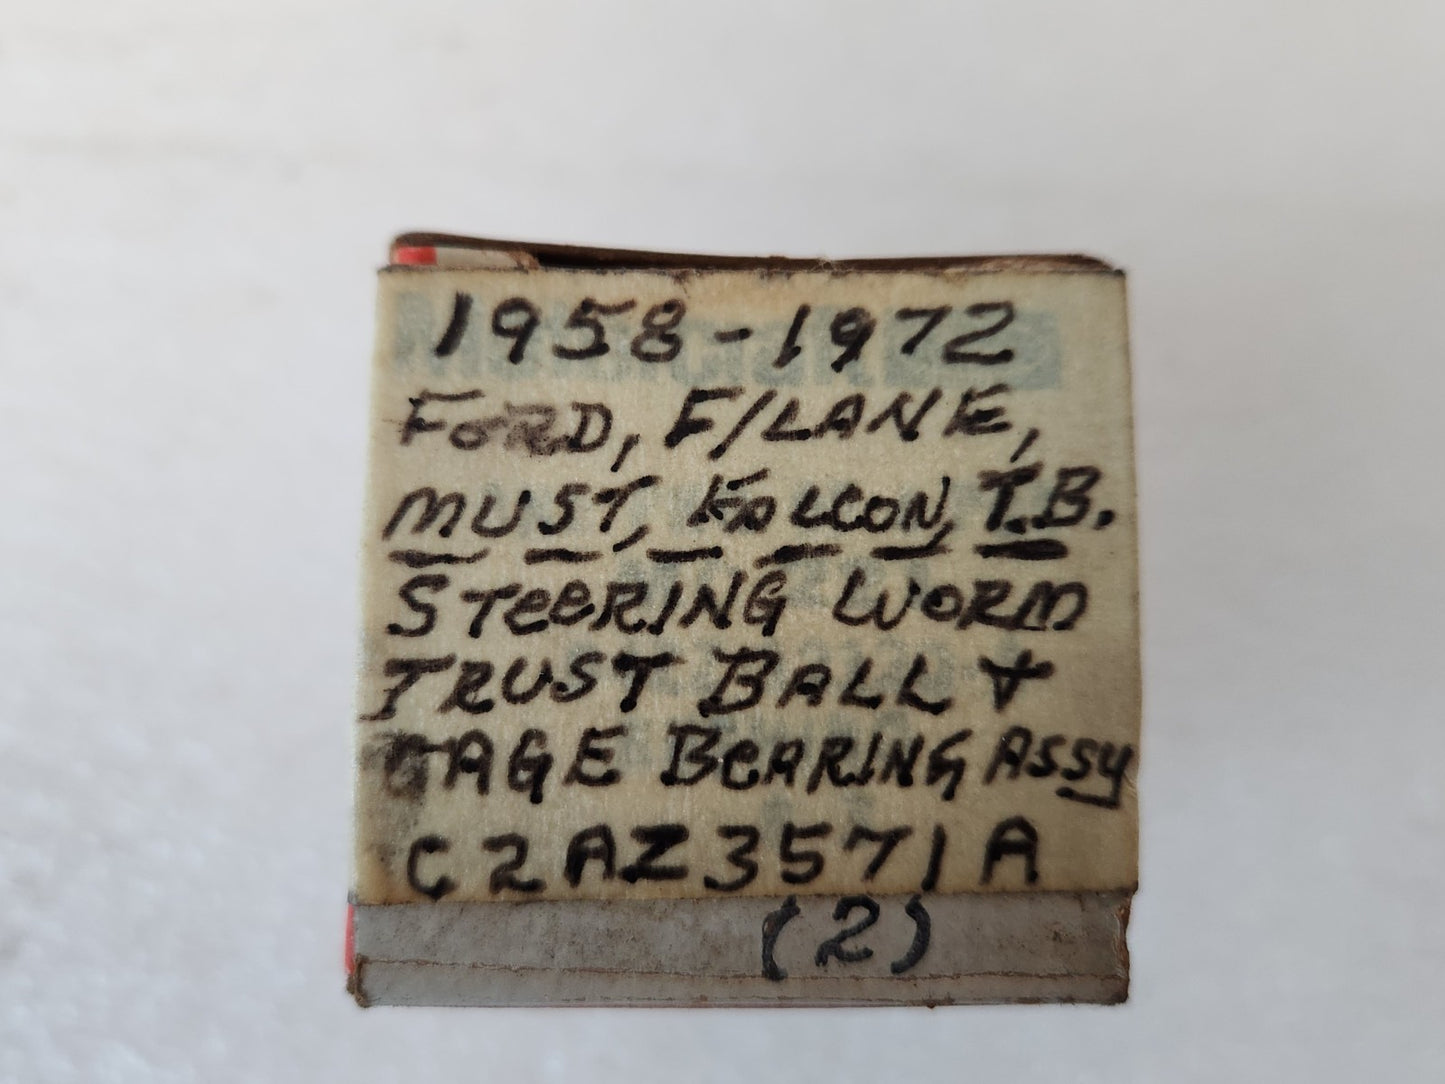 1958-1972
FORD, F/LANE,
MUST, FALCON, T.B.
STeeRING WORM
TRUST BALL &
CAGE BeARING ASSY
C2AZ3571A
(2)